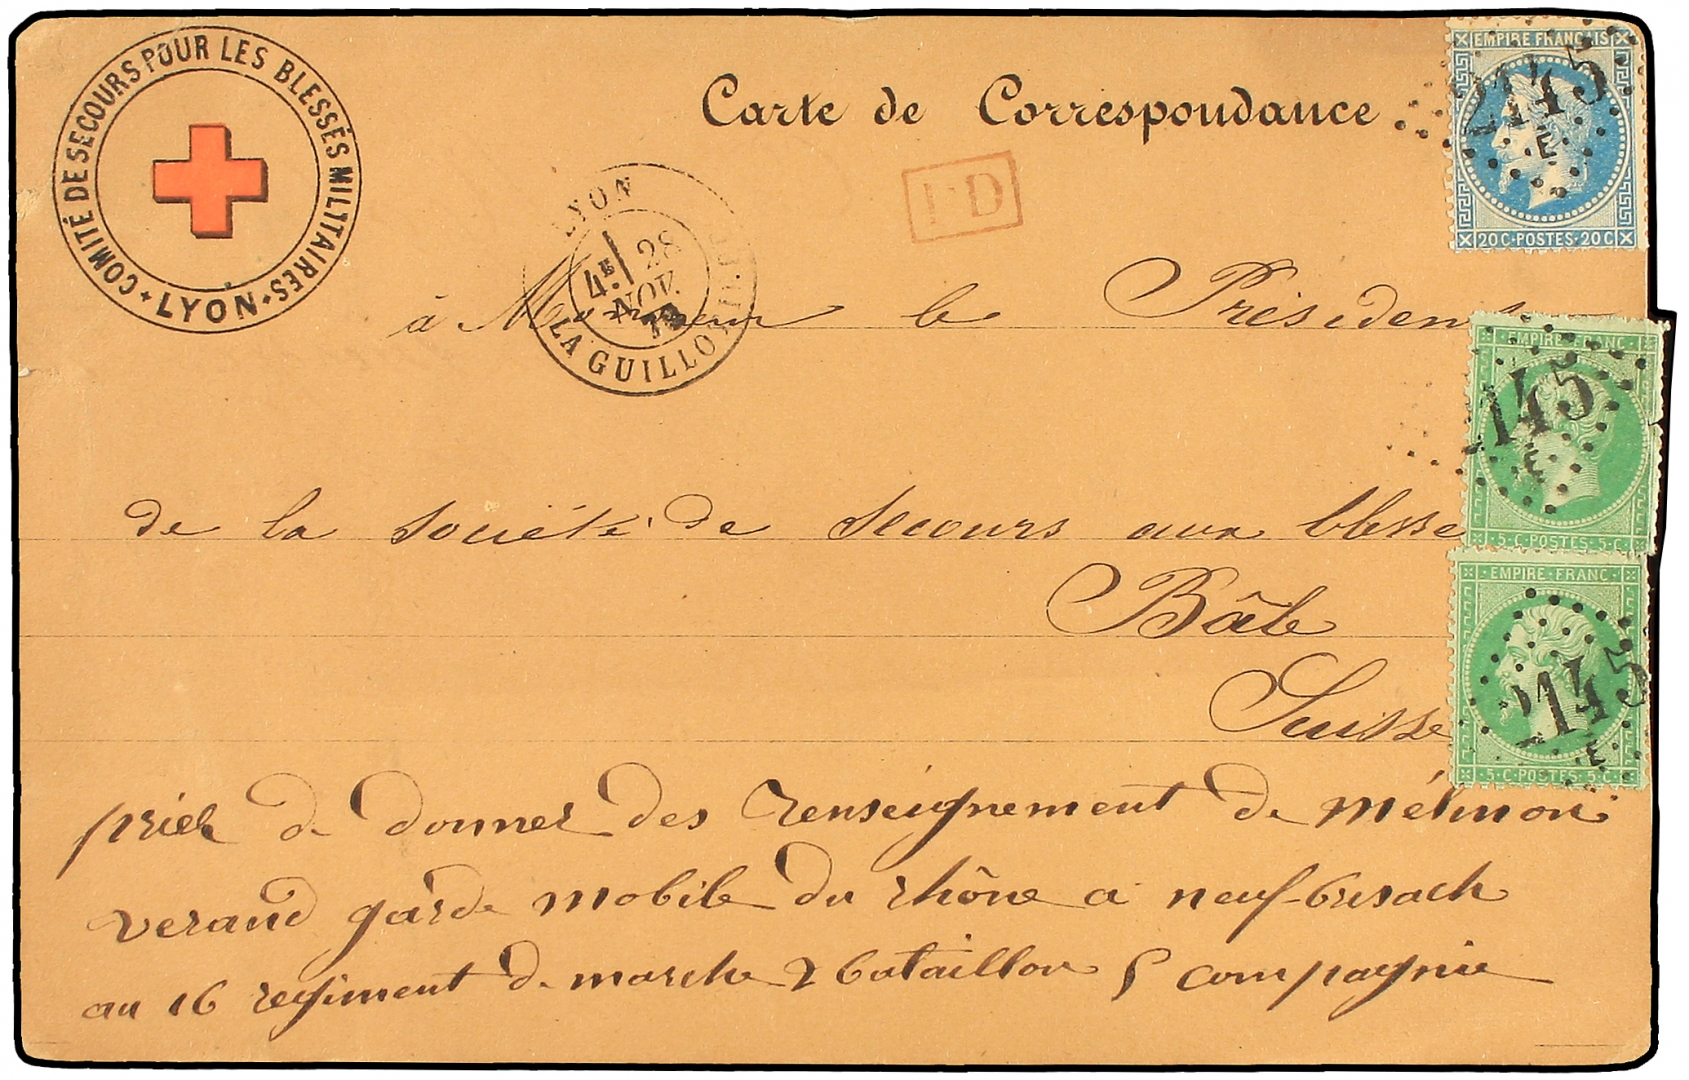 COMITÉ DE SECOURS POUR LES BLESSÉS MILITAIRES
LYON
Carte de Correspondance
EMPIRE FRANÇAIS
2145
E
20 C · POSTES · 20 C
LYON
4E 28
NOV.
LA GUILLOTIÈRE
PD
à Monsieur le Président
EMPIRE · FRANC
145
E
5 · C · POSTES · 5 · C
de la Société de Secours aux blessé
Bâle
Suisse
EMPIRE · FRANC
2145
E
5 · C · POSTES · 5 · C
prier de donner des renseignement de
verand garde mobile du rhône a neuf-brisach
au 16 regiment de marche 2 bataillon 5 compagnie